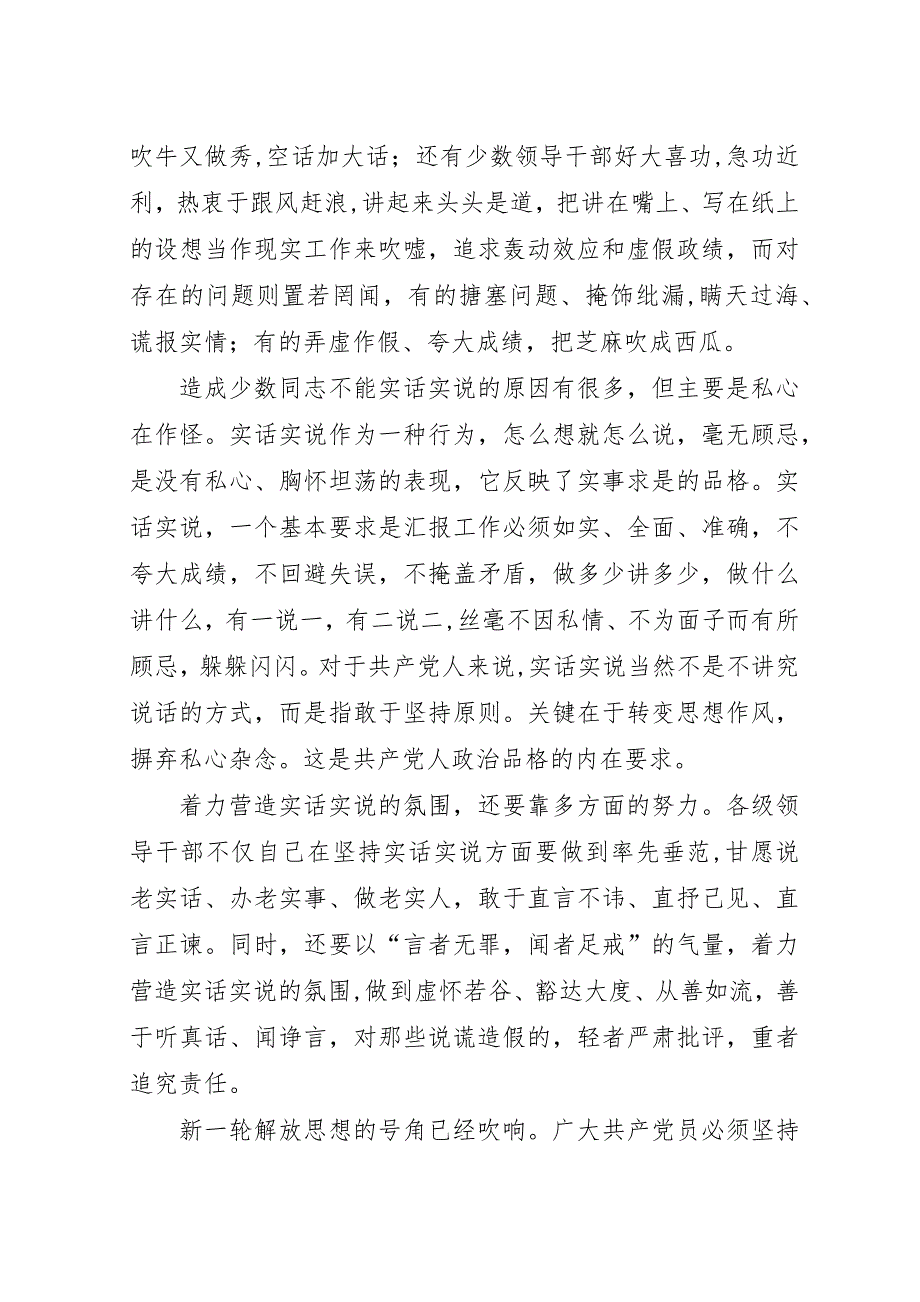 吹牛又做秀,空话加大话；还有少数领导干部好大喜功,急功近
利，热衷于跟风赶浪,讲起来头头是道，把讲在嘴上、写在纸上
的设想当作现实工作来吹嘘，追求轰动效应和虚假政绩，而对
存在的问题则置若罔闻，有的搪塞问题、掩饰纰漏,瞒天过海、
谎报实情；有的弄虚作假、夸大成绩，把芝麻吹成西瓜。
造成少数同志不能实话实说的原因有很多，但主要是私心
在作怪。实话实说作为一种行为，怎么想就怎么说，毫无顾忌，
是没有私心、胸怀坦荡的表现，它反映了实事求是的品格。实
话实说，一个基本要求是汇报工作必须如实、全面、准确，不
夸大成绩，不回避失误，不掩盖矛盾，做多少讲多少，做什么
讲什么，有一说一，有二说二,丝毫不因私情、不为面子而有所
顾忌，躲躲闪闪。对于共产党人来说,实话实说当然不是不讲究
说话的方式，而是指敢于坚持原则。关键在于转变思想作风，
摒弃私心杂念。这是共产党人政治品格的内在要求。
着力营造实话实说的氛围，还要靠多方面的努力。各级领
导干部不仅自己在坚持实话实说方面要做到率先垂范,甘愿说
老实话、办老实事、做老实人，敢于直言不讳、直抒己见、直
言正谏。同时，还要以“言者无罪，闻者足戒”的气量，着力
营造实话实说的氛围,做到虚怀若谷、豁达大度、从善如流，善
于听真话、闻诤言，对那些说谎造假的，轻者严肃批评，重者
追究责任。
新一轮解放思想的号角已经吹响。广大共产党员必须坚持